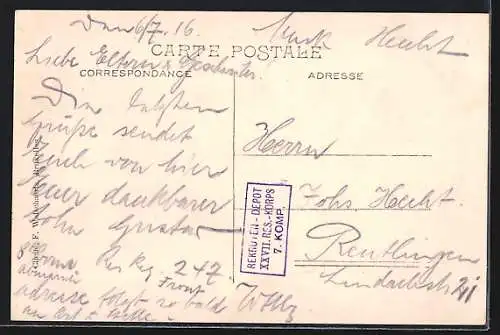 Den 6/7. 16.
CARTE POSTALE
Liebe Eltern & Geschwister!
CORRESPONDANCE
Die letzten
Grüße sendet
Euch von hier
Euer dankbarer
Sohn Gustav
Res. Reg. 247
Front
adresse folgt so bald
Hecht
ADRESSE
Herrn
Johs. Hecht.
Reutlingen
Lindachstr. 21
Wttbg
REKRUTEN-DEPOT
XXVII. RES.-KORPS
7. KOMP.